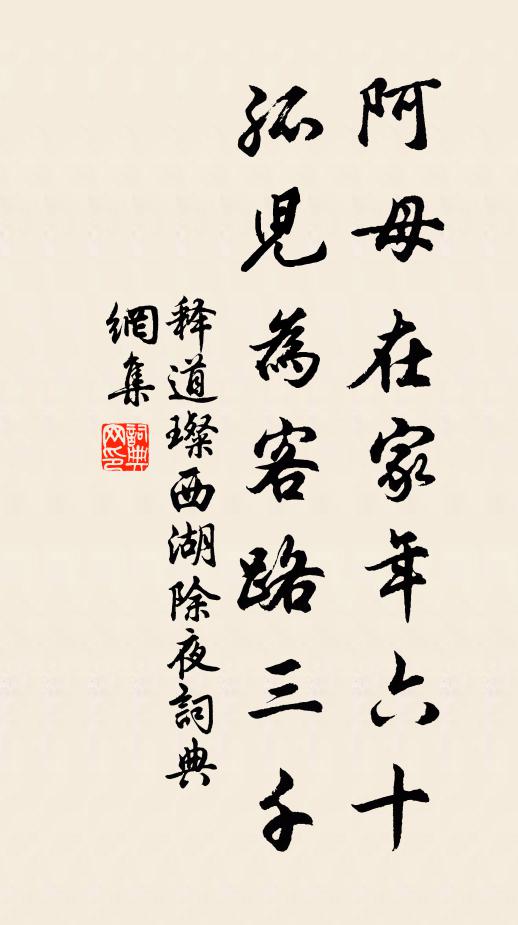 阿母在家年六十
孤兒為客路三千
释道璨西湖除夜詞典
網集
詞典
网印